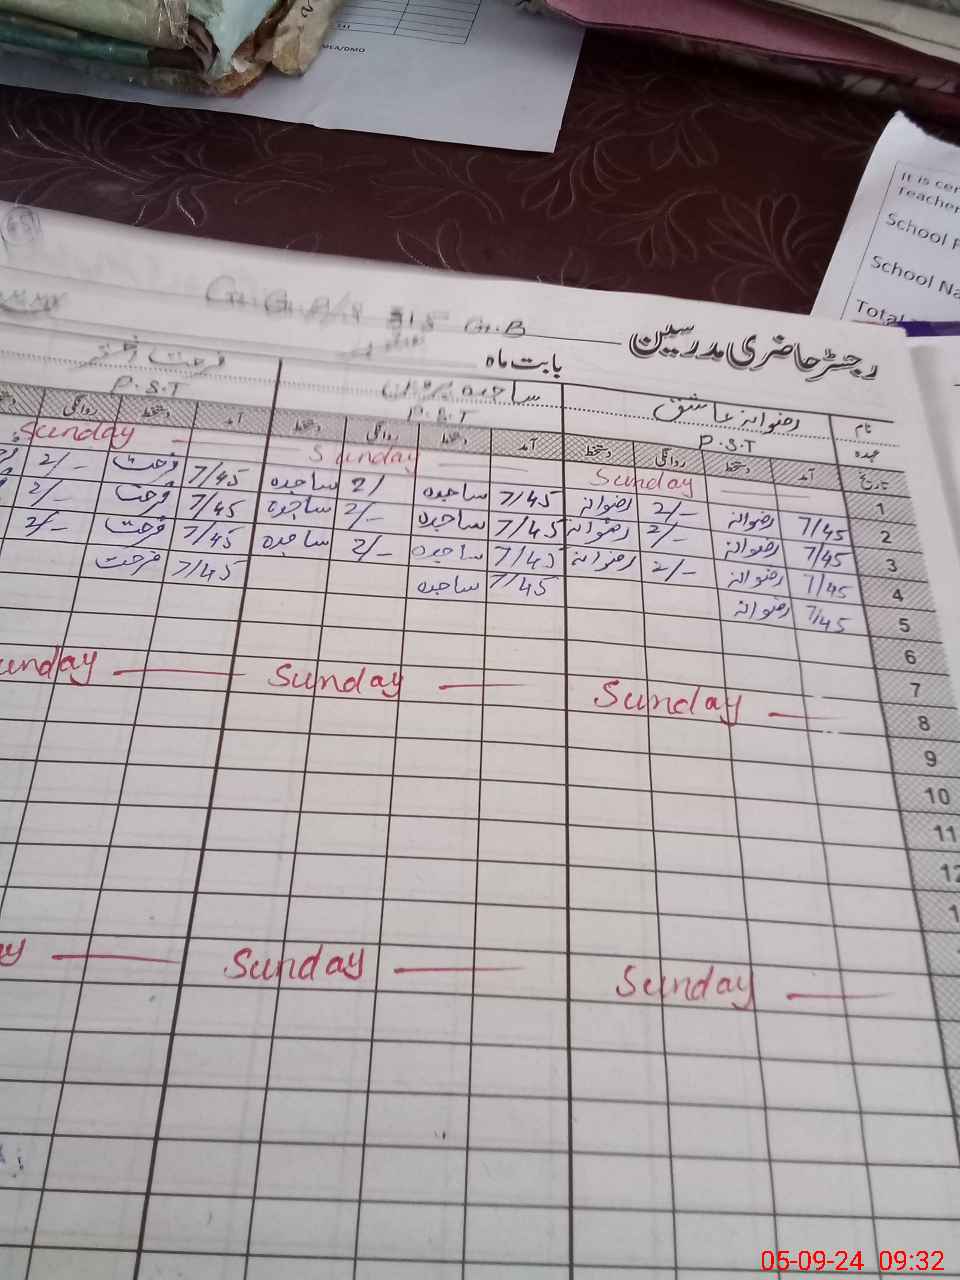 MEA/DMO
It is cer
Teacher
School F
School Na
Total
G.B
رجسٹر حاضری مدرسین
بابت ماہ
نام رضوانہ عاشق ساجدہ فرحت
عہدہ P.S.T P.S.T P.S.T
تاریخ آمد دستخط روانگی دستخط آمد دستخط روانگی دستخط آمد دستخط روانگی
1 Sunday Sunday Sunday
2 7/45 رضوانہ 2/- رضوانہ 7/45 ساجدہ 2/ ساجدہ 7/45 فرحت 2/-
3 7/45 رضوانہ 2/- رضوانہ 7/45 ساجدہ 2/- ساجدہ 7/45 فرحت 2/-
4 7/45 رضوانہ 2/- رضوانہ 7/45 ساجدہ 2/- ساجدہ 7/45 فرحت 2/-
5 7/45 رضوانہ 7/45 ساجدہ 7/45 فرحت
6
7
8 Sunday Sunday unday
9
10
11
12
1
Sunday Sunday ay
05-09-24 09:32